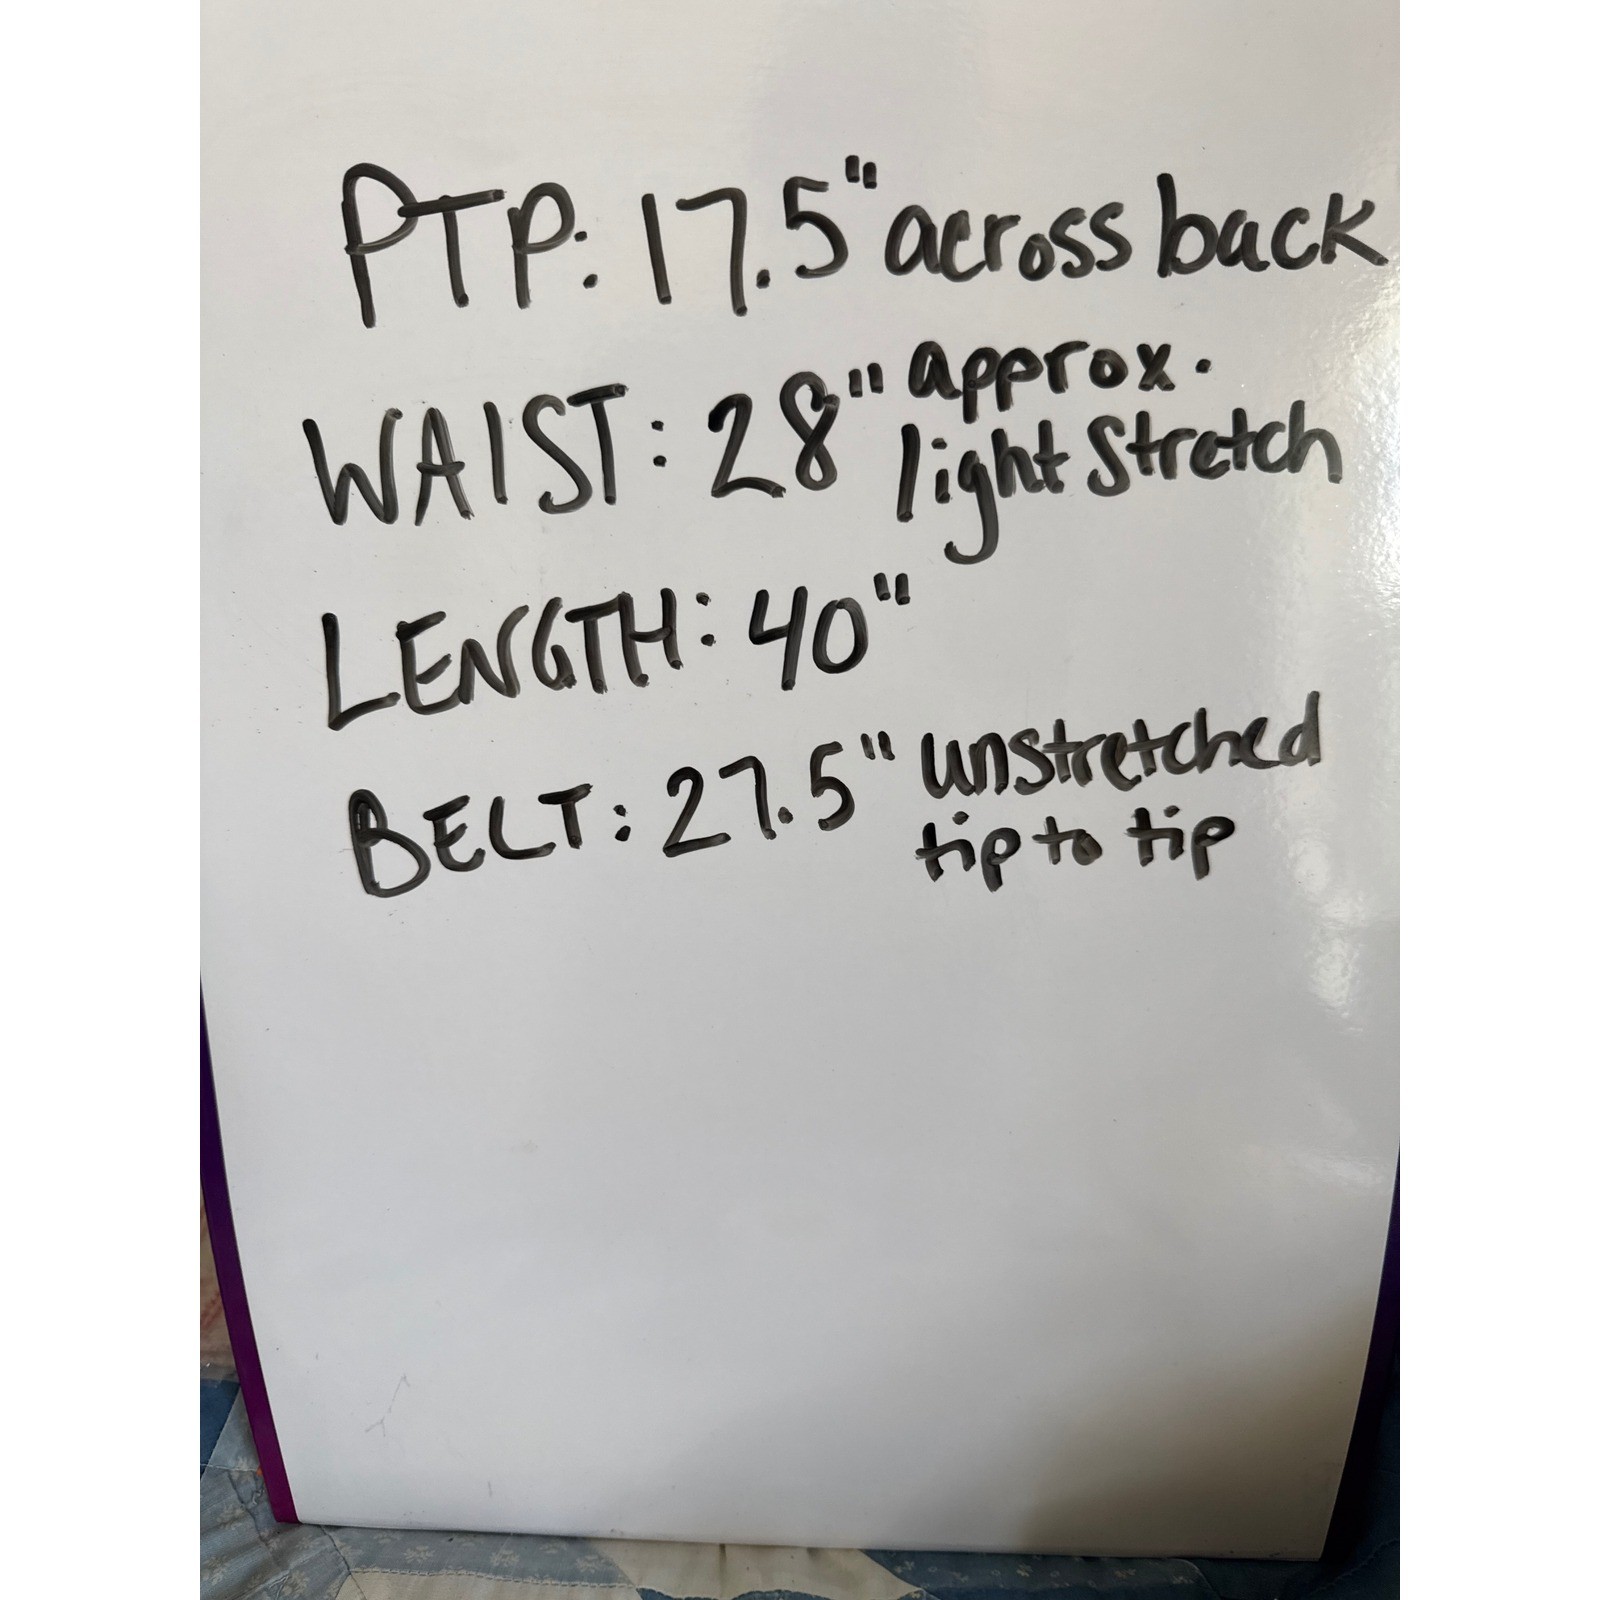 PTP: 17.5" across back
WAIST: 28" approx.
light stretch
LENGTH: 40"
BELT: 27.5" unstretched
tip to tip